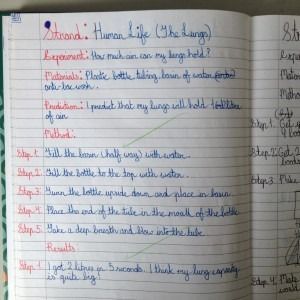 Strand: Human Life (The Lungs)
Experiment: How much air can my lungs hold?
Materials: Plastic bottle, tubing, basin of water
anti-bac wash.
Prediction: I predict that my lungs will hold 1 litre
of air
Method:
Step 1: Fill the basin (half way) with water.
Step 2: Fill the bottle to the top with water.
Step 3: Turn the bottle upside down and place in basin.
Step 4: Place the end of the tube in the mouth of the bottle.
Step 5: Take a deep breath and blow into the tube.
Results
Step 1 I got 2 litres in 5 seconds. I think my lung capacity
is quite big!
Step 1.
Step 2.
Step 3. Make